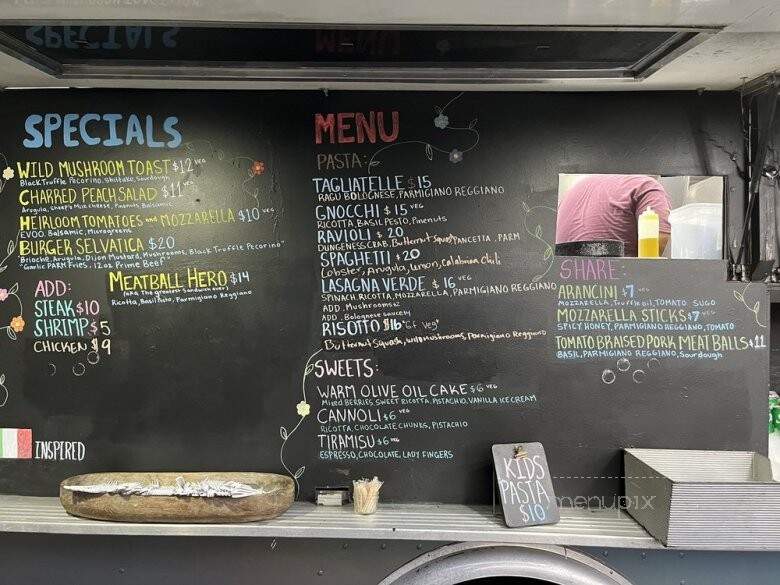 SPECIALS
WILD MUSHROOM TOAST $12 VEG
Black Truffle Pecorino, Shiitake, Sourdough
CHARRED PEACH SALAD $11 VEG
Arugula, Sheep's Milk Cheese, Peanuts, Balsamic
HEIRLOOM TOMATOES and MOZZARELLA $10 VEG
EVOO, Balsamic, Microgreens
BURGER SELVATICA $20
Brioche, Arugula, Dijon Mustard, Mushrooms, Black Truffle Pecorino"
"Garlic PARM Fries, 12oz Prime Beef"
ADD:
STEAK $10
SHRIMP $5
CHICKEN $9
MEATBALL HERO $14
(AKA The greatest Sandwich ever)
Ricotta, Basil Pesto, Parmigiano Reggiano
INSPIRED
MENU
PASTA:
TAGLIATELLE $15
RAGU BOLOGNESE, PARMIGIANO REGGIANO
GNOCCHI $15 VEG
RICOTTA BASIL PESTO, Pinenuts
RAVIOLI $20
DUNGENESS CRAB, Butternut Squash, PANCETTA, PARM
SPAGHETTI $20
Lobster, Arugula, Lemon, Calabrian Chili
LASAGNA VERDE $16 VEG
SPINACH, RICOTTA, MOZZARELLA, PARMIGIANO REGGIANO
ADD. Mushrooms $2
ADD. Bolognese
RISOTTO $16 "GF Veg"
Butternut Squash, wild mushrooms, Parmigiano Reggiano
SWEETS:
WARM OLIVE OIL CAKE $6 VEG
Mixed BERRIES, SWEET RICOTTA, PISTACHIO, VANILLA ICE CREAM
CANNOLI $6 VEG
RICOTTA, CHOCOLATE CHUNKS, PISTACHIO
TIRAMISU $6 VEG
ESPRESSO, CHOCOLATE, LADY FINGERS
SHARE:
ARANCINI $7 VEG
MOZZARELLA, Truffle oil, TOMATO SUGO
MOZZARELLA STICKS $7 VEG
SPICY HONEY, PARMIGIANO REGGIANO, TOMATO
TOMATO BRAISED PORK MEATBALLS $11
BASIL, PARMIGIANO REGGIANO, Sourdough
KIDS
PASTA
$10
menupix